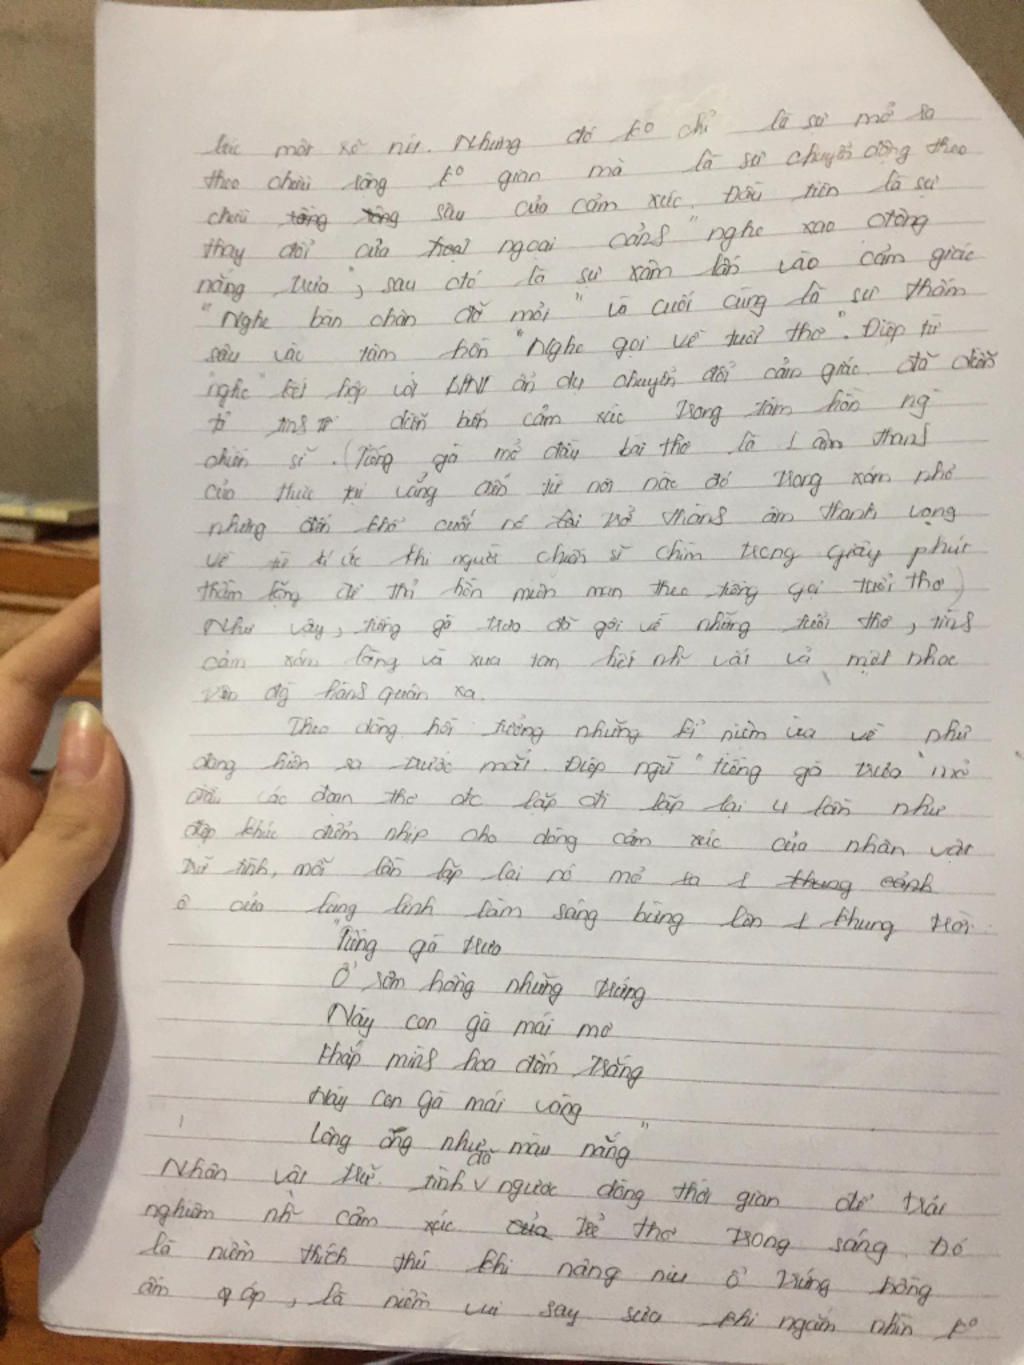 một xế nữa. Nhưng đó k° chỉ là sự mở ra
theo chiều rộng k° gian mà là sự chuyển động theo
chiều sâu của cảm xúc. Đầu tiên là sự
thay đổi của ngoại cảnh "nghe xao động
nắng trưa", sau đó là sự xâm lấn vào cảm giác
"Nghe bàn chân đỡ mỏi" và cuối cùng là sự thấm
sâu vào tâm hồn "Nghe gọi về tuổi thơ". Điệp từ
"nghe" kết hợp với ẩn dụ chuyển đổi cảm giác đã diễn
tả diễn biến cảm xúc trong tâm hồn ng
chiến sĩ. (Tiếng gà mở đầu bài thơ là 1 âm thanh
của thực tại vẳng đến từ nơi nào đó trong xóm nhỏ
nhưng đến khổ cuối nó lại trở thành âm thanh vọng
về từ kí ức khi người chiến sĩ chìm trong giây phút
thầm lặng để thả hồn miên man theo tiếng gọi tuổi thơ)
Như vậy, tiếng gà trưa đã gọi về những tuổi thơ, tình
cảm xóm làng và xua tan hết nh vất vả mệt nhọc
trên đg hành quân xa.
Theo dòng hồi tưởng những kỉ niệm ùa về như
đang hiện ra trước mắt. Điệp ngữ "tiếng gà trưa" mở
đầu các đoạn thơ đc lặp đi lặp lại 4 lần như
điệp khúc điểm nhịp cho dòng cảm xúc của nhân vật
trữ tình, mỗi lần lặp lại nó mở ra 1
ô cửa lung linh làm sáng bừng lên 1 khung trời.
"Tiếng gà trưa
Ổ rơm hồng những trứng
Này con gà mái mơ
Khắp mình hoa đốm trắng
Này con gà mái vàng
Lông óng như màu nắng"
Nhân vật trữ tình đã ngược dòng thời gian để trải
nghiệm nh~ cảm xúc trẻ thơ trong sáng. Đó
là niềm thích thú khi nâng niu ổ trứng hồng
ấm áp, là niềm vui say sưa khi ngắm nhìn k°